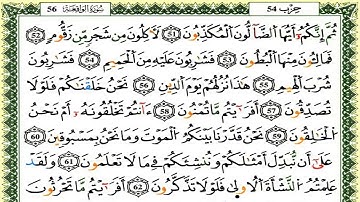 حِزْب 54 سُورَةُ الوَاقِعَة 56
ثُمَّ إِنَّكُمْ أَيُّهَا ٱلضَّآلُّونَ ٱلْمُكَذِّبُونَ 51 لَأٓكِلُونَ مِن شَجَرٍ مِّن زَقُّومٍ 52
فَمَالِـُٔونَ مِنْهَا ٱلْبُطُونَ 53 فَشَٰرِبُونَ عَلَيْهِ مِنَ ٱلْحَمِيمِ 54 فَشَٰرِبُونَ
شُرْبَ ٱلْهِيمِ 55 هَٰذَا نُزُلُهُمْ يَوْمَ ٱلدِّينِ 56 نَحْنُ خَلَقْنَٰكُمْ فَلَوْلَا
تُصَدِّقُونَ 57 أَفَرَءَيْتُم مَّا تُمْنُونَ 58 ءَأَنتُمْ تَخْلُقُونَهُۥٓ أَمْ نَحْنُ
ٱلْخَٰلِقُونَ 59 نَحْنُ قَدَّرْنَا بَيْنَكُمُ ٱلْمَوْتَ وَمَا نَحْنُ بِمَسْبُوقِينَ 60
عَلَىٰٓ أَن نُّبَدِّلَ أَمْثَٰلَكُمْ وَنُنشِئَكُمْ فِى مَا لَا تَعْلَمُونَ 61 وَلَقَدْ
عَلِمْتُمُ ٱلنَّشْأَةَ ٱلْأُولَىٰ فَلَوْلَا تَذَكَّرُونَ 62 أَفَرَءَيْتُم مَّا تَحْرُثُونَ